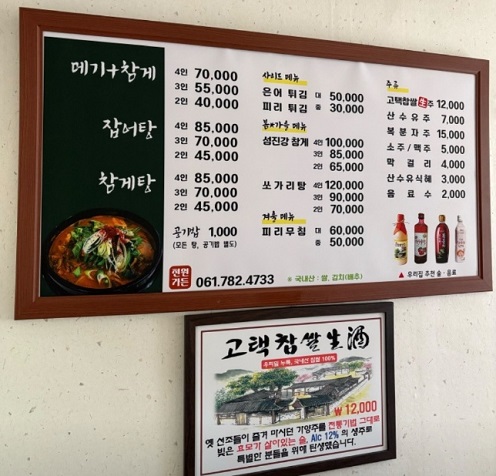 메기+참게
4인 70,000
3인 55,000
2인 40,000
잡어탕
4인 85,000
3인 70,000
2인 45,000
참게탕
4인 85,000
3인 70,000
2인 45,000
공기밥 1,000
(모든 탕, 공기밥 별도)
061.782.4733
사이드 메뉴
은어 튀김 대 50,000
피리 튀김 중 30,000
봄*가을 메뉴
섬진강 참게 4인 100,000
3인 85,000
2인 65,000
쏘가리탕 4인 120,000
3인 90,000
2인 70,000
겨울 메뉴
피리무침 대 60,000
중 50,000
* 국내산 : 쌀, 김치(배추)
주류
고택찹쌀生주 12,000
산수유주 7,000
복분자주 15,000
소주/맥주 5,000
막걸리 4,000
산수유식혜 3,000
음료수 2,000
▲ 우리집 추천 술·음료
고택찹쌀生酒
우리밀 누룩, 국내산 찹쌀 100%
₩12,000
옛 선조들이 즐겨 마시던 가양주를 전통기법 그대로
빚은 효모가 살아있는 술, Alc 12% 의 생주로
특별한 분들을 위해 탄생했습니다.